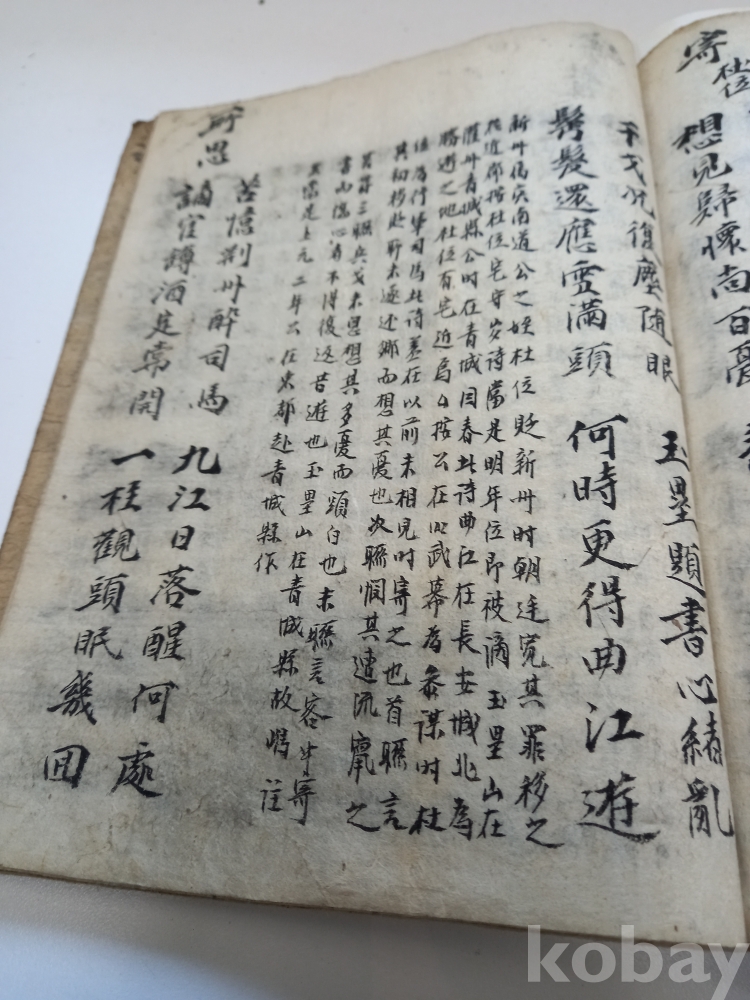 寄杜位
想見歸懷尚百憂
干戈況復塵隨眼
鬂髮還應雪滿頭
玉壘題書心緒亂
何時更得曲江遊
新州爲嶺南道公之姪杜位貶新州時朝廷寬其罪移之
近郡按杜位宅守岁詩當是明年位即被謫玉壘山在
灌州青城縣公時在青城因春此詩曲江在長安城北爲
勝遊之地杜位有宅近焉公按公在武幕爲參謀時杜
位爲行軍司馬此詩蓋在以前未相見时寄之也首聯言
其初移处所未逐还鄉而想其憂也次聯憫其遠流竄之
三聯兵戈未息想其多憂而頭白也末聯言客中寄
書山傷心有不得復返昔遊也玉壘山在青城縣故
是上元二年公在成都赴青城縣作
所思
苦憶荆州醉司馬
謫官罇酒定常開
九江日落醒何處
一柱觀頭眠幾回
kobay